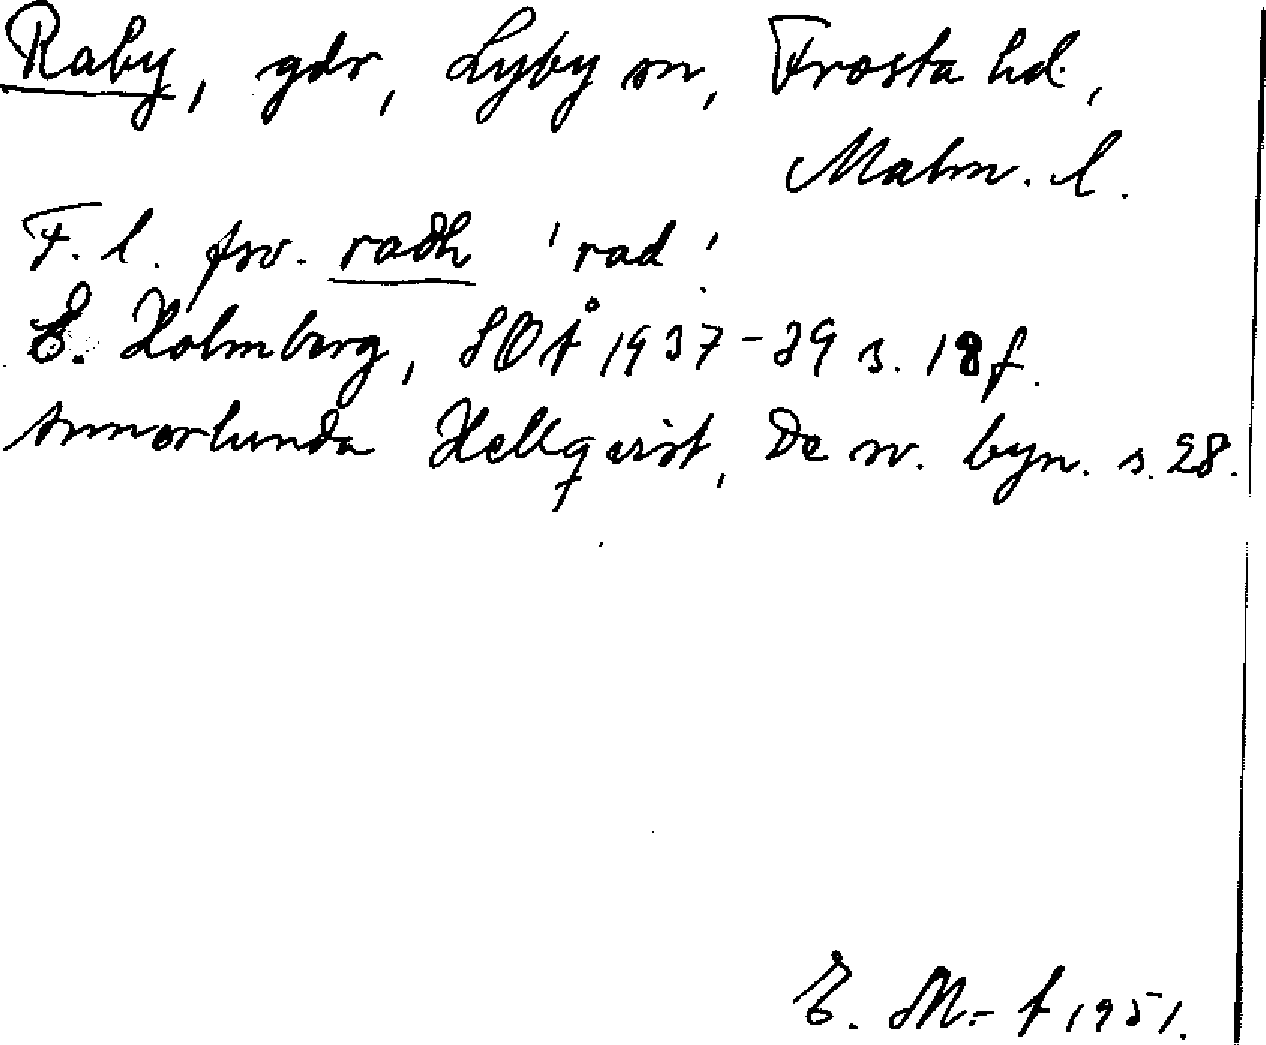 Raby, gdr, Lyby sn, Frosta hd.,
Malm. l.
F. l. fsv. radh 'rad'.
E. Holmberg, SOÅ 1937-39 s. 18 f.
Annorlunda Hellquist, De sv. byn. s. 28.
E. M-f 1951.